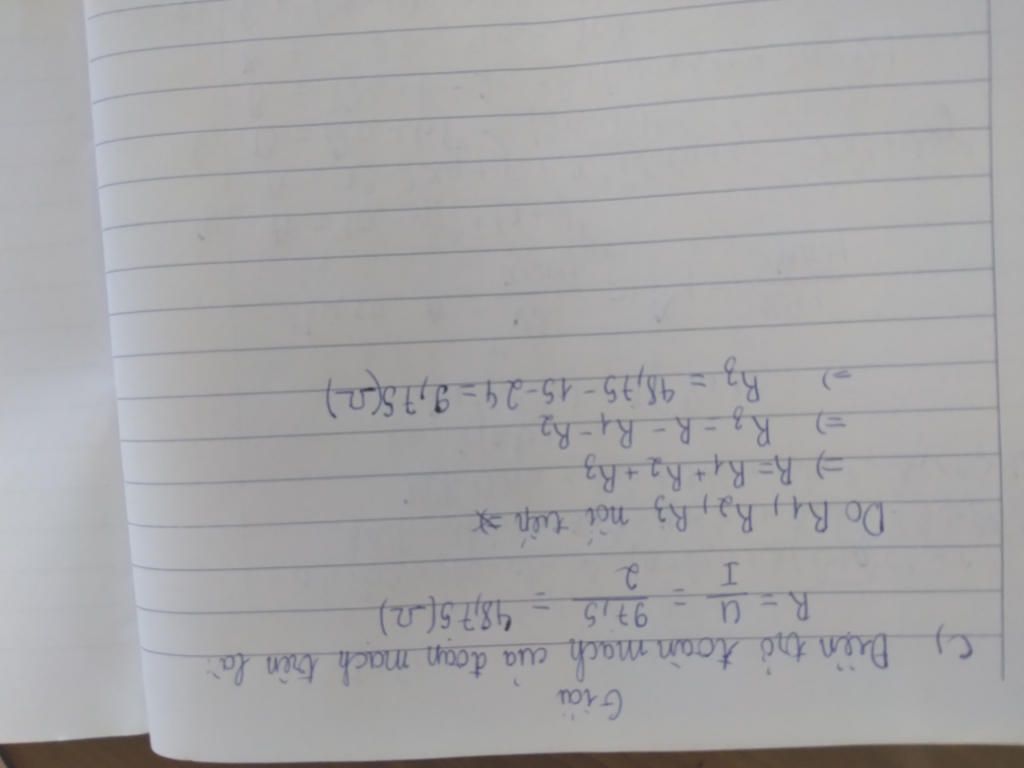 Giải
c) Điện trở toàn mạch của đoạn mạch trên là:
R = U/I = 97,5/2 = 48,75(Ω)
Do R1, R2, R3 nối tiếp
=) R = R1 + R2 + R3
=) R3 = R - R1 - R2
=) R3 = 48,75 - 15 - 24 = 9,75(Ω)